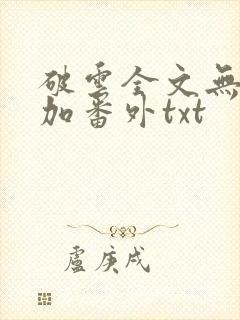 破雲全文無
加番外txt
盧庚戌